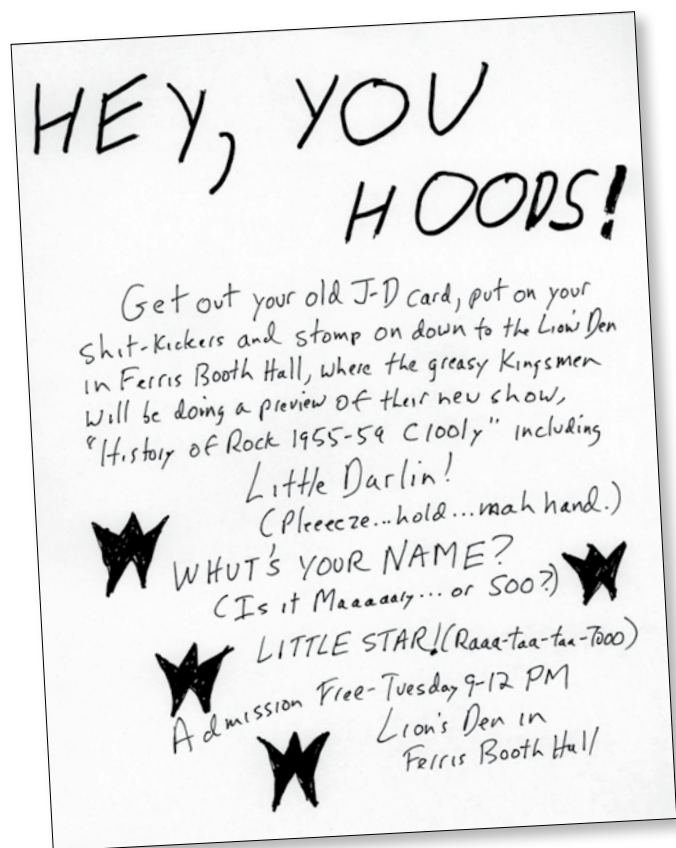 HEY, YOU
HOODS!
Get out your old J-D card, put on your
shit-kickers and stomp on down to the Lion's Den
in Ferris Booth Hall, where the greasy Kingsmen
will be doing a preview of their new show,
"History of Rock 1955-59 C1001y" including
Little Darlin!
(Pleeeeze...hold...mah hand.)
WHUT'S YOUR NAME?
(Is it Maaaaary... or Soo?)
LITTLE STAR! (Raaa-taa-taa-Tooo)
Admission Free-Tuesday 9-12 PM
Lion's Den in
Ferris Booth Hall